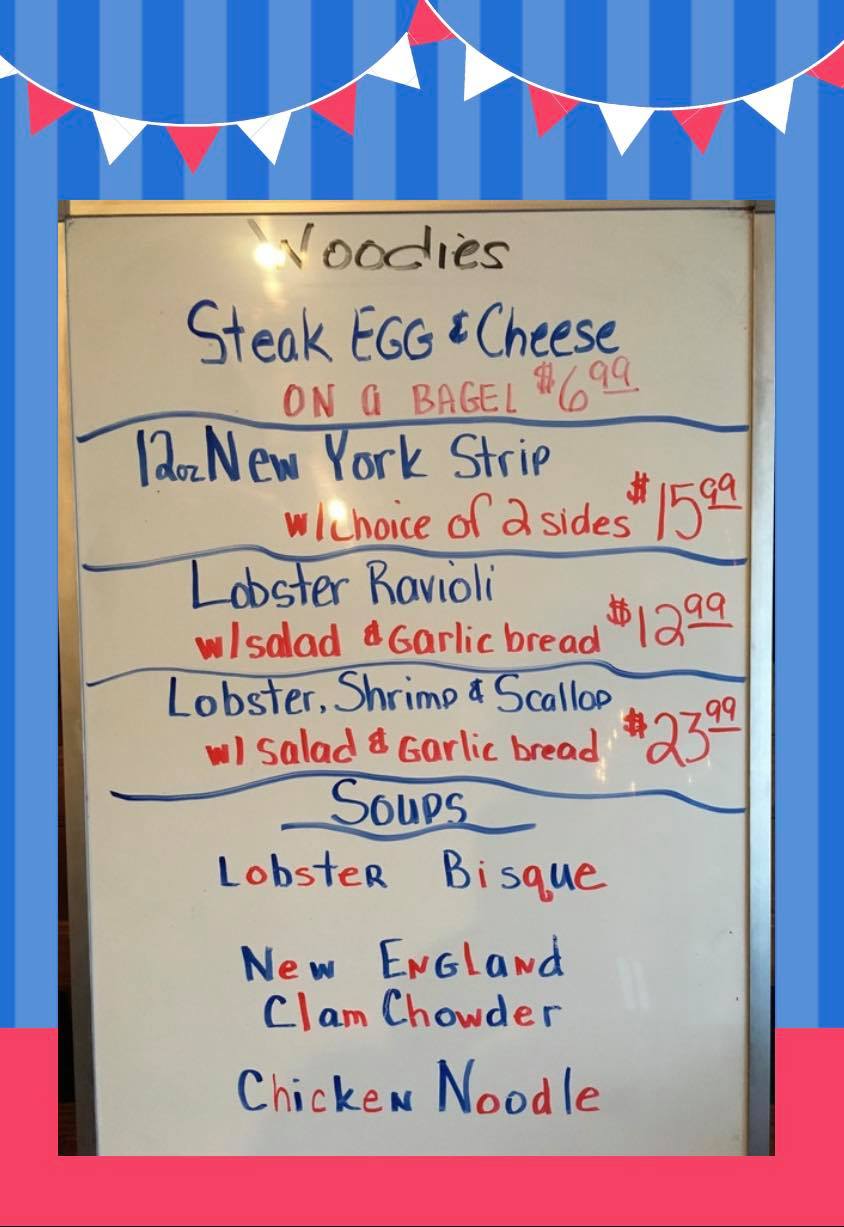 Woodies
Steak EGG & Cheese
ON a BAGEL $6.99
12oz New York Strip
w/choice of 2 sides $15.99
Lobster Ravioli
w/salad & Garlic bread $12.99
Lobster, Shrimp & Scallop
w/ Salad & Garlic bread $23.99
Soups
LobsteR Bisque
New ENGLaNd
Clam Chowder
ChickeN Noodle